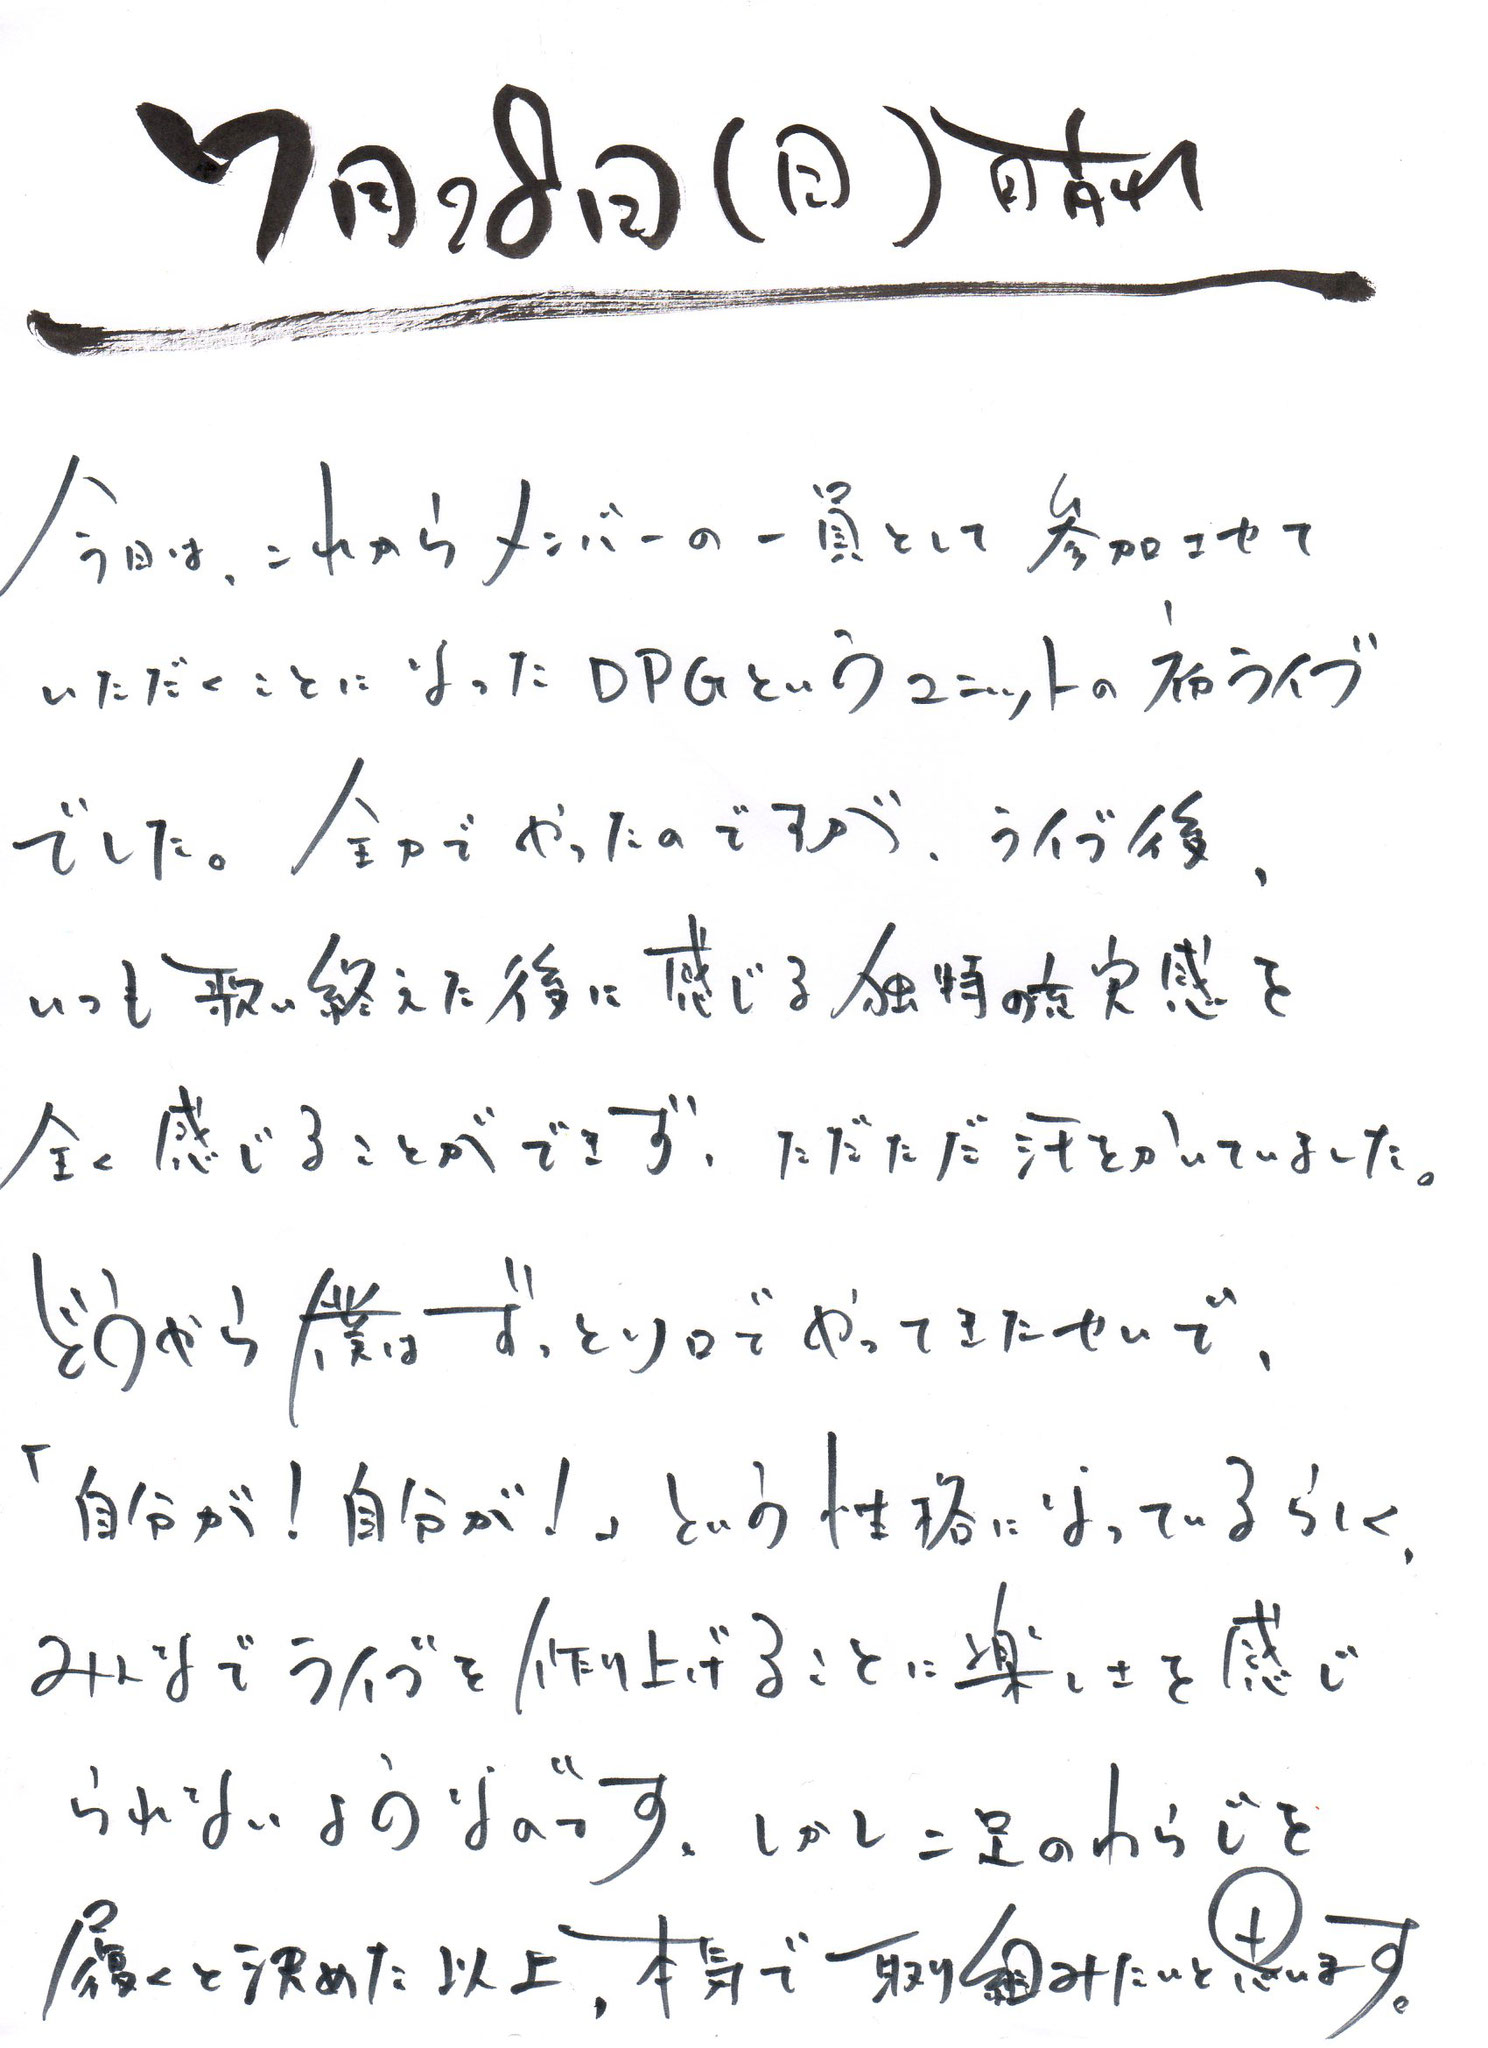 7月28日(日)晴れ
今日は、これからメンバーの一員として参加させて
いただくことになったDPGというユニットの初ライブ
でした。全力でやったのですが、ライブ後、
いつも歌い終えた後に感じる独特の充実感を
全く感じることができず、ただただ汗をかいていました。
どうやら僕はずっとソロでやってきたせいで、
「自分が！自分が！」という性格になっているらしく、
みんなでライブを作り上げることに楽しさを感じ
られないようなのです。しかし二足のわらじを
履くと決めた以上、本気で取り組みたいと思います。